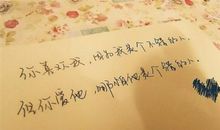 你喜欢我,因为我是个不错的人.
但你爱他,哪怕他是个错的人.